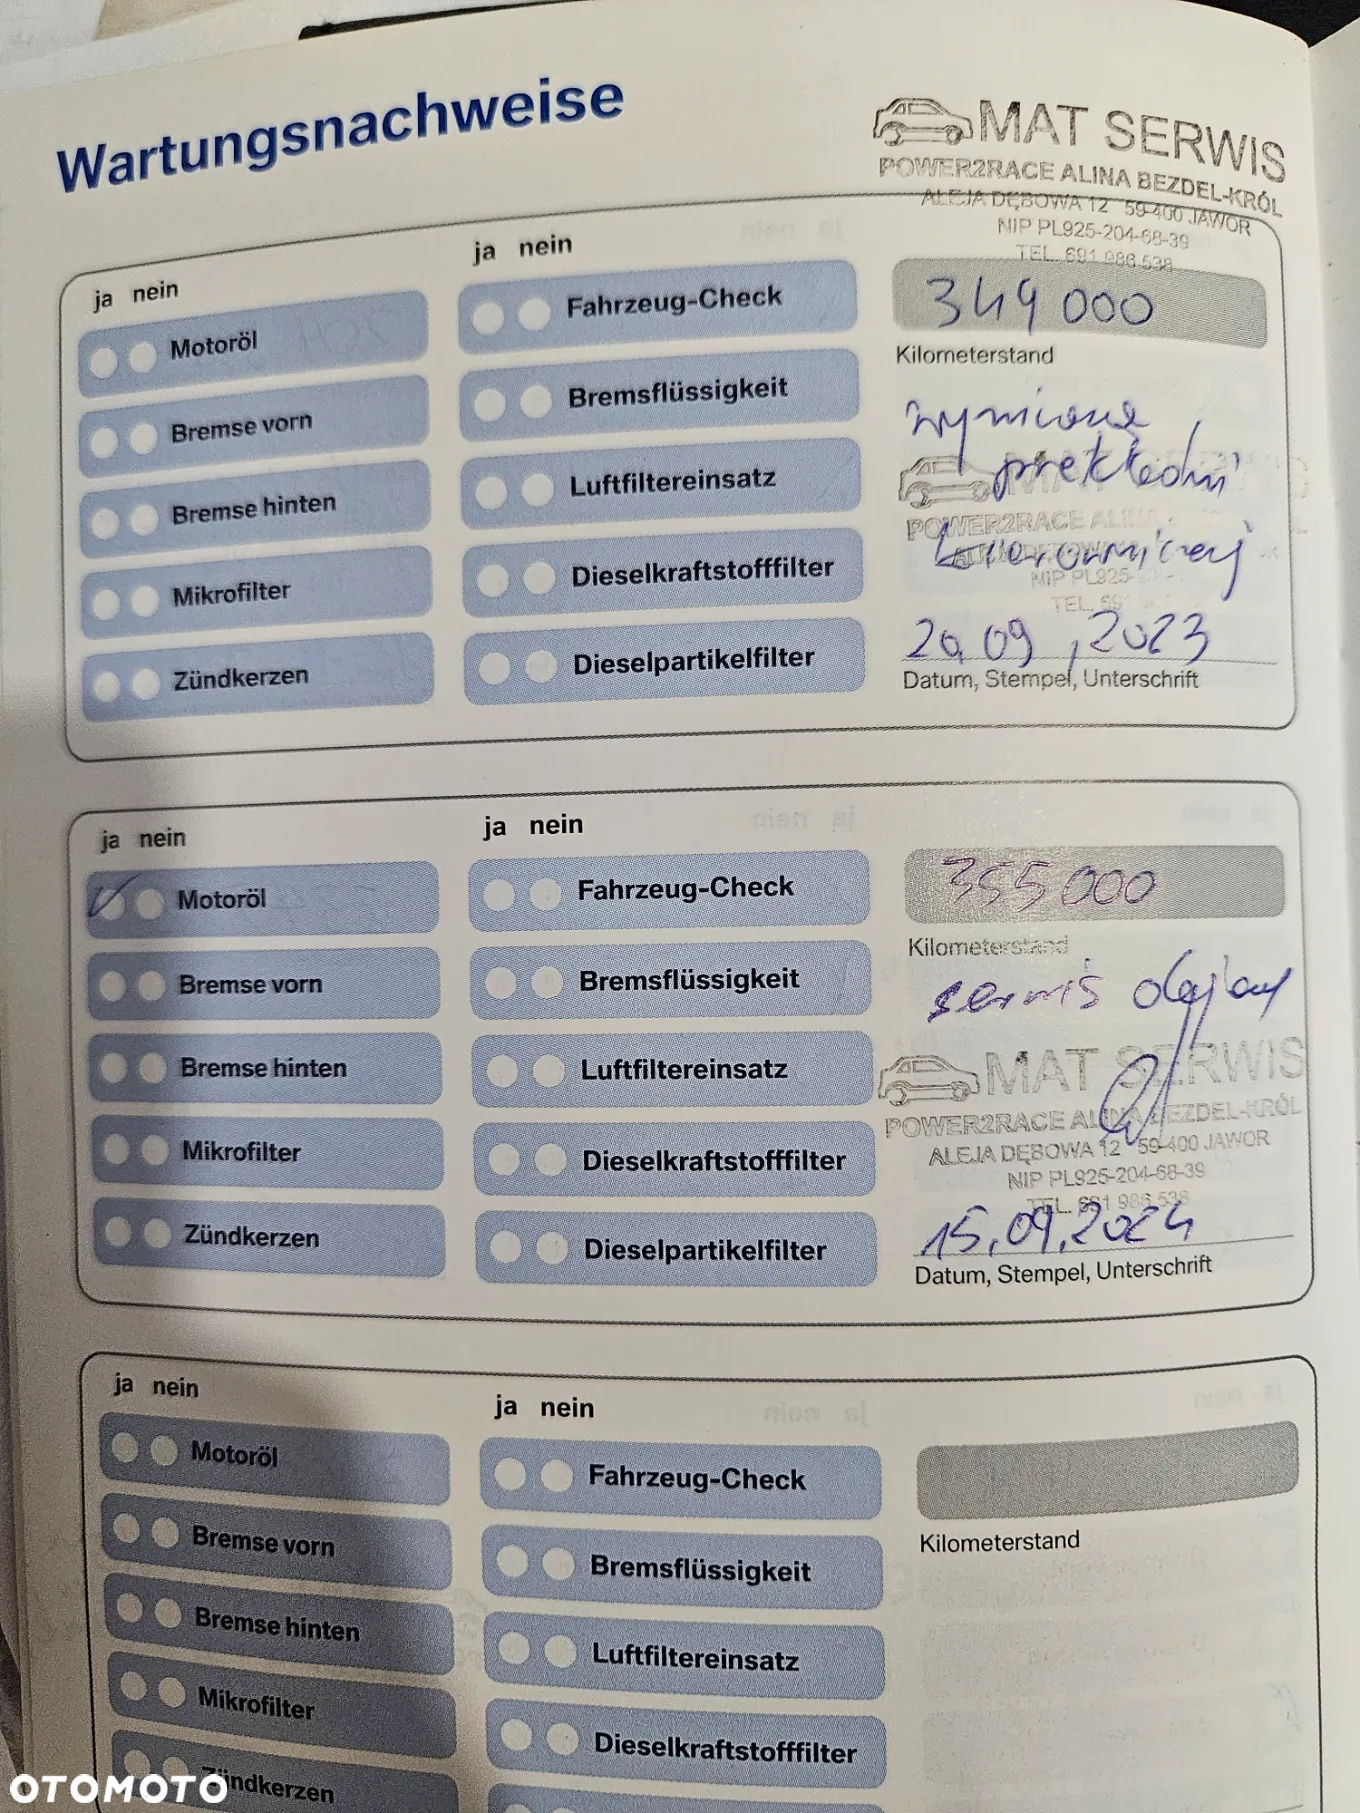 Wartungsnachweise
MAT SERWIS
POWER2RACE ALINA BEZDEL-KRÓL
ALEJA DĘBOWA 12 59-400 JAWOR
NIP PL925-204-68-39
TEL. 691 986 538
ja nein
Motoröl
Bremse vorn
Bremse hinten
Mikrofilter
Zündkerzen
ja nein
Fahrzeug-Check
Bremsflüssigkeit
Luftfiltereinsatz
Dieselkraftstofffilter
Dieselpartikelfilter
349 000
Kilometerstand
POWER2RACE ALINA
NIP PL925-
TEL.
20.09.2023
Datum, Stempel, Unterschrift
ja nein
Motoröl
Bremse vorn
Bremse hinten
Mikrofilter
Zündkerzen
ja nein
Fahrzeug-Check
Bremsflüssigkeit
Luftfiltereinsatz
Dieselkraftstofffilter
Dieselpartikelfilter
355 000
Kilometerstand
serwis olejowy
MAT SERWIS
POWER2RACE ALINA BEZDEL-KRÓL
ALEJA DĘBOWA 12 59-400 JAWOR
NIP PL925-204-68-39
TEL. 691 986 538
15.09.2024
Datum, Stempel, Unterschrift
ja nein
Motoröl
Bremse vorn
Bremse hinten
Mikrofilter
Zündkerzen
ja nein
Fahrzeug-Check
Bremsflüssigkeit
Luftfiltereinsatz
Dieselkraftstofffilter
Kilometerstand
OTOMOTO